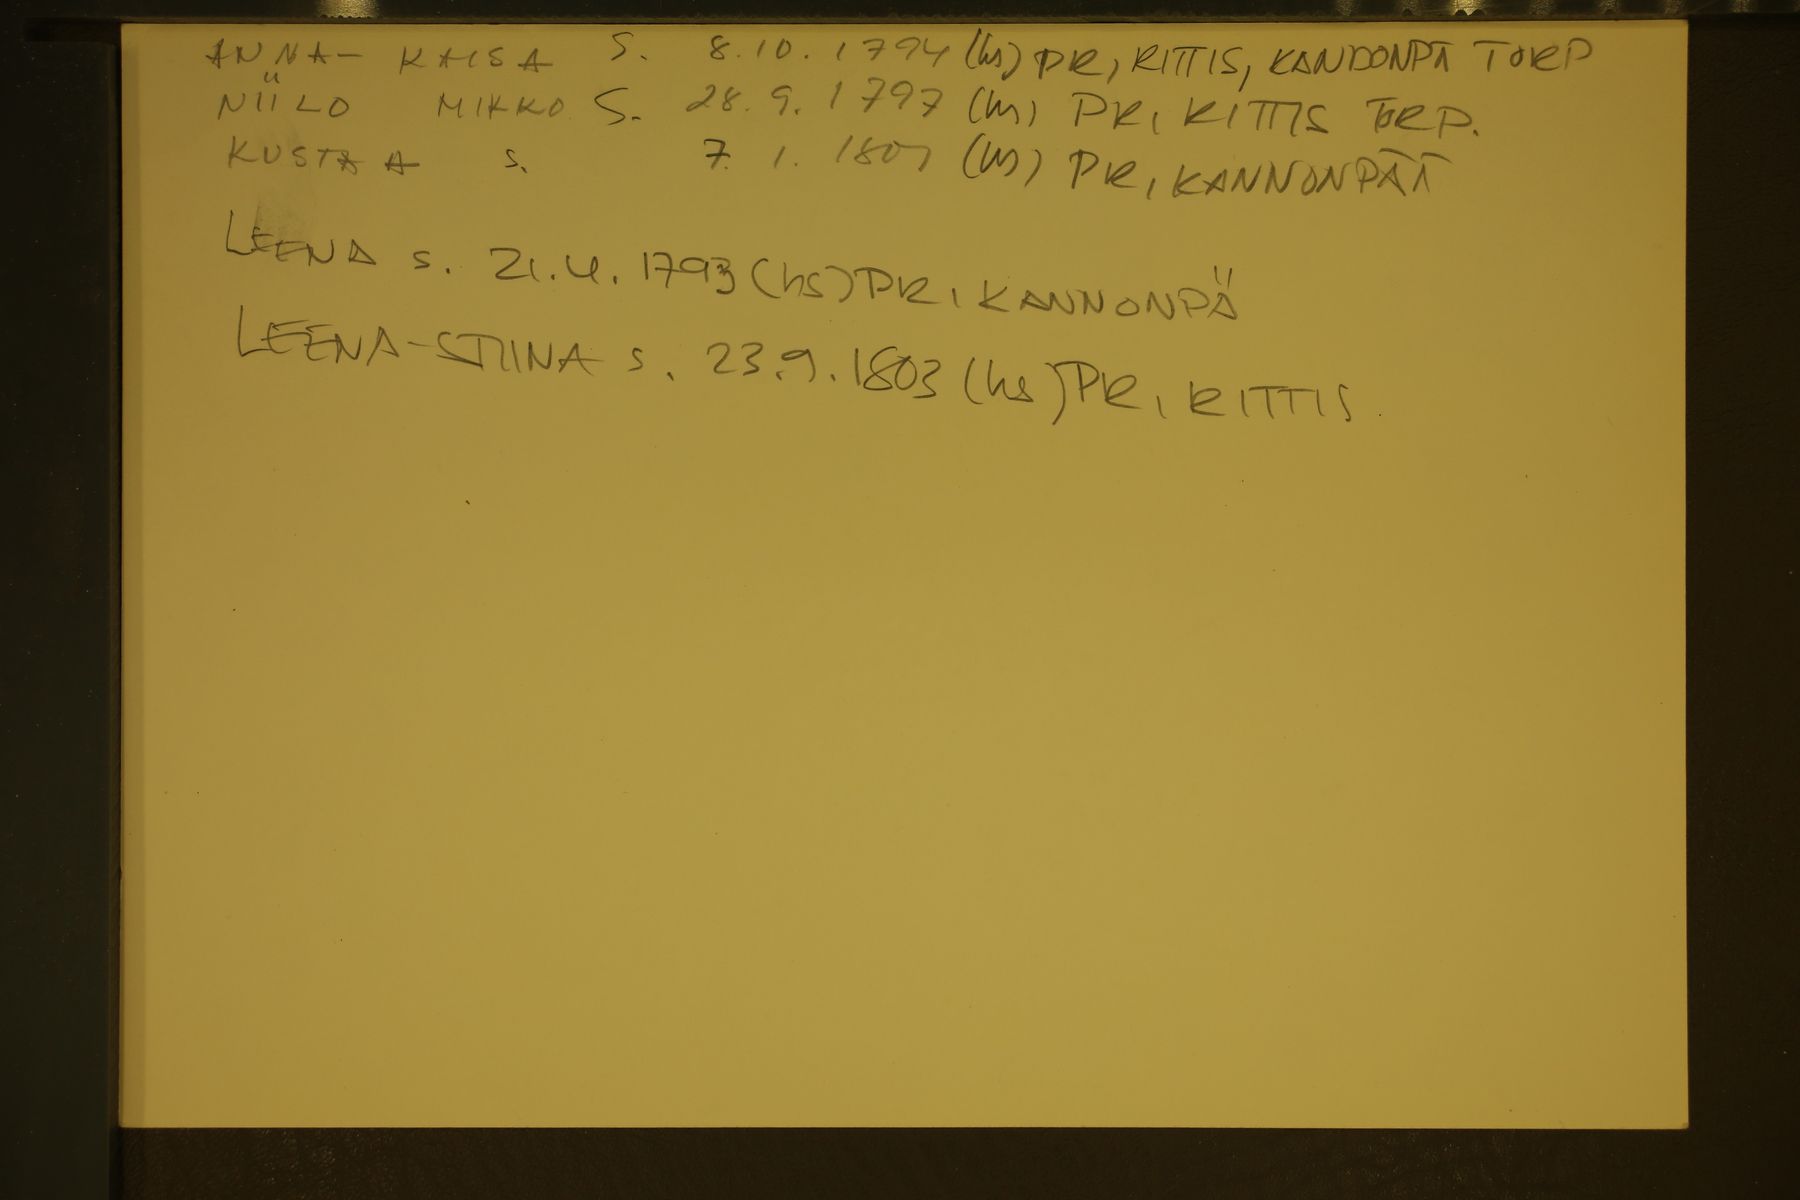 ANNA- KAISA S. 8.10.1794 (hs) PR, RITTIS, KANDONPÄ TORP
NIILO MIKKO S. 28.9.1797 (hs) PR, RITTIS TORP.
KUSTAA s. 7.1. (hs) PR, KANNONPÄÄ
LEENA s. 21.4.1793 (hs) PR, KANNONPÄ
LEENA-STIINA s. 23.9.1803 (hs) PR, RITTIS